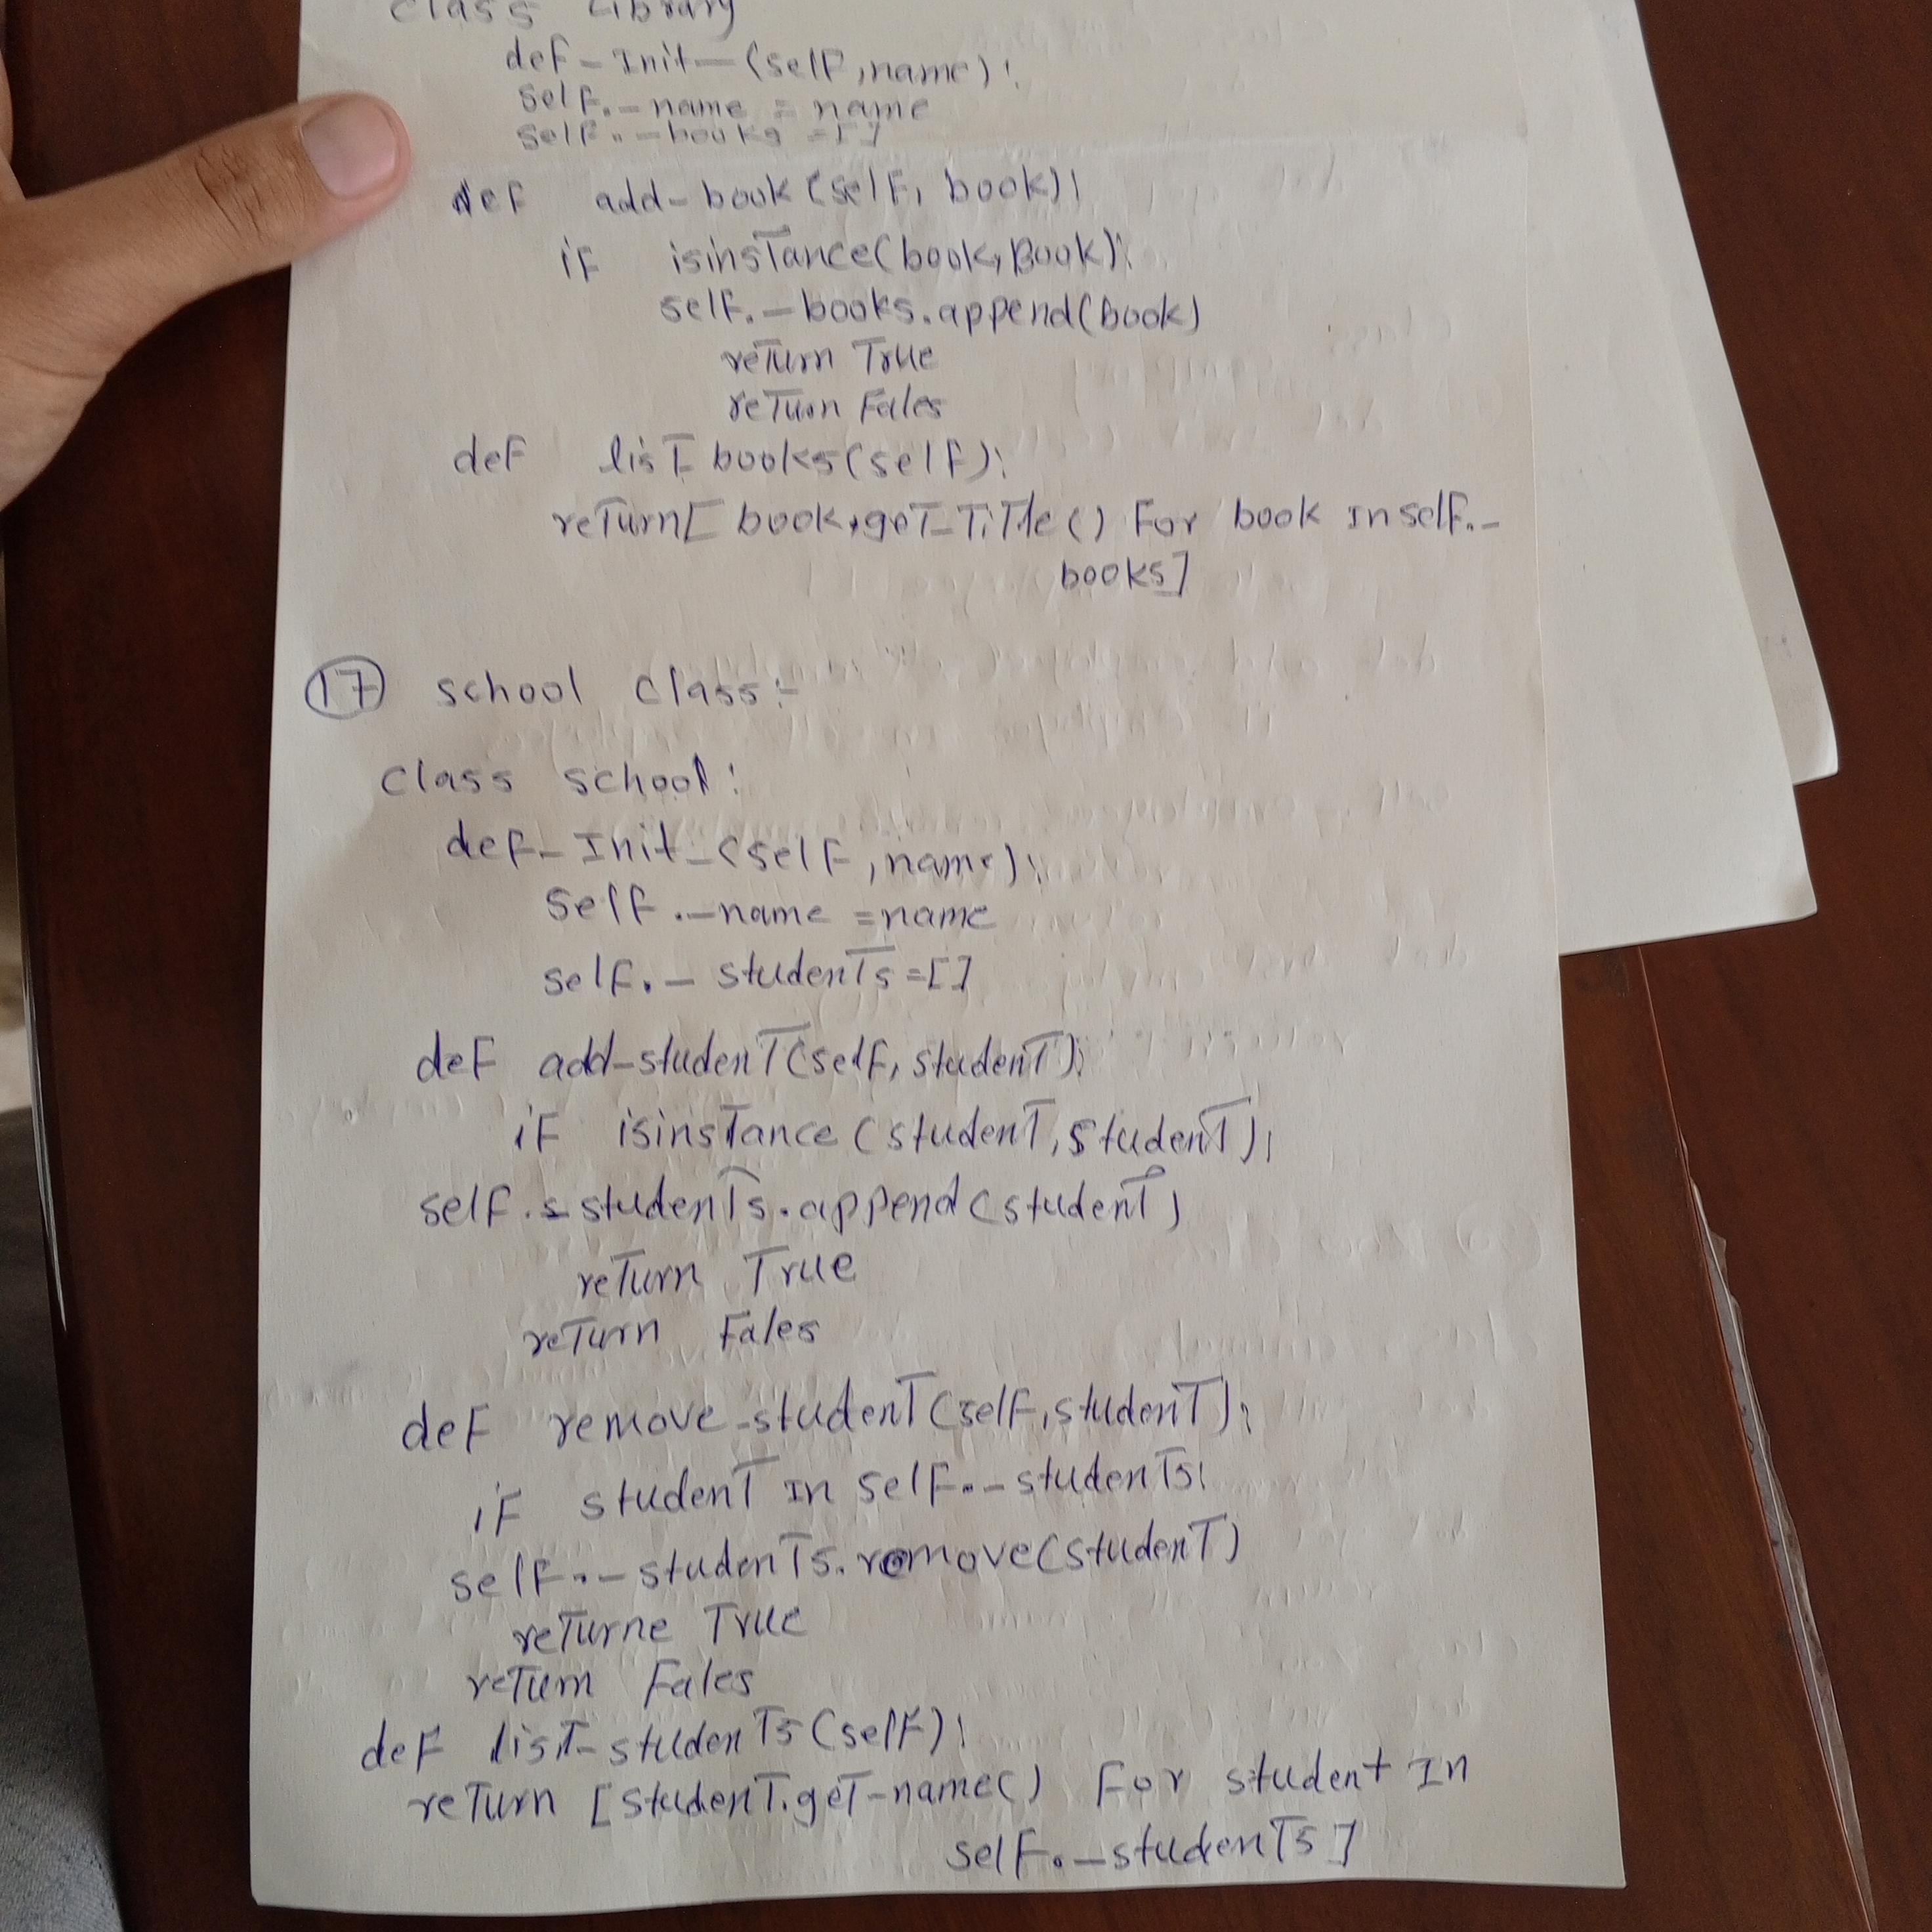 class Library
def-Init—(self,name):
self.-name = name
self.-books =[]
def add-book(self, book):
if isinstance(book,Book):
self.-books.append(book)
return True
return Fales
def list-books(self):
return[ book.get-Title() For book In self.-
books]
17 school class:-
class school:
def-Init-(self,name):
self.-name =name
self.- students=[]
def add-student(self,student):
if isinstance(student,student):
self.s students.append(student)
return True
return Fales
def remove-student(self,student):
if student In self.-students:
self.-students.remove(student)
returne True
return Fales
def list-students(self):
return [student.get-name() For student In
self.-students]